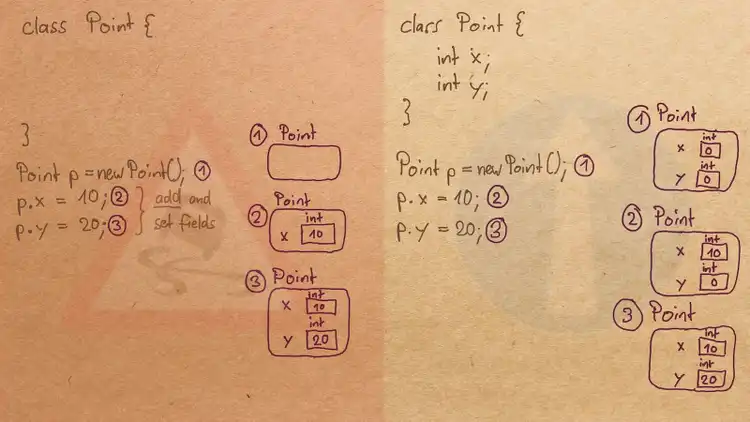 class Point {
}
Point p = new Point(); ①
p.x = 10; ② } add and
p.y = 20; ③ set fields
① Point
② Point
int
x 10
③ Point
int
x 10
int
y 20
class Point {
int x;
int y;
}
Point p = new Point(); ①
p.x = 10; ②
p.y = 20; ③
① Point
int
x 0
int
y 0
② Point
int
x 10
int
y 0
③ Point
int
x 10
int
y 20